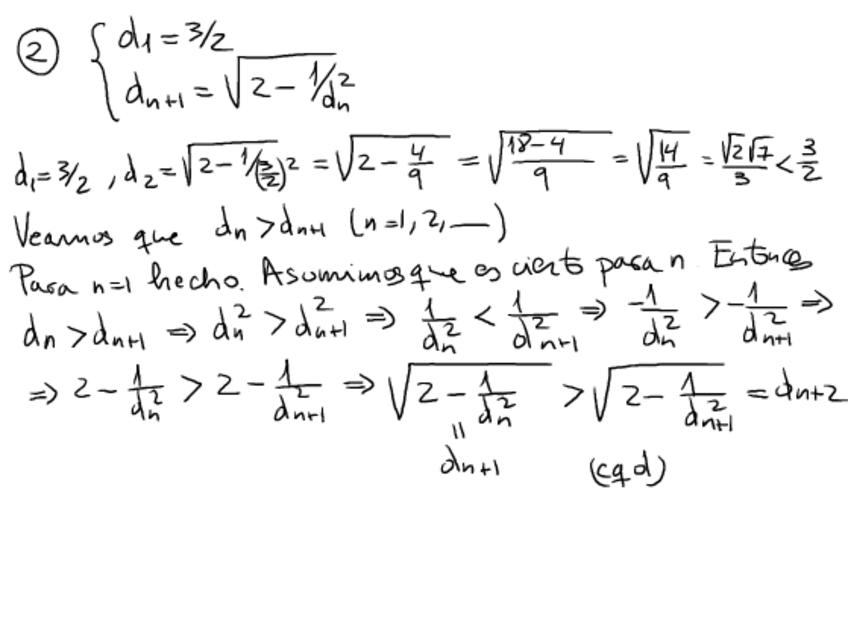 ② { d₁ = 3/2
dₙ₊₁ = √(2 - 1/dₙ²)
d₁ = 3/2 , d₂ = √(2 - 1/(3/2)²) = √(2 - 4/9) = √((18-4)/9) = √(14/9) = √2√7/3 < 3/2
Veamos que dₙ > dₙ₊₁ (n=1, 2, —)
Para n=1 hecho. Asumimos que es cierto para n. Entonces
dₙ > dₙ₊₁ ⇒ dₙ² > dₙ₊₁² ⇒ 1/dₙ² < 1/dₙ₊₁² ⇒ -1/dₙ² > -1/dₙ₊₁² ⇒
⇒ 2 - 1/dₙ² > 2 - 1/dₙ₊₁² ⇒ √(2 - 1/dₙ²) > √(2 - 1/dₙ₊₁²) = dₙ₊₂
=
dₙ₊₁ (cqd)